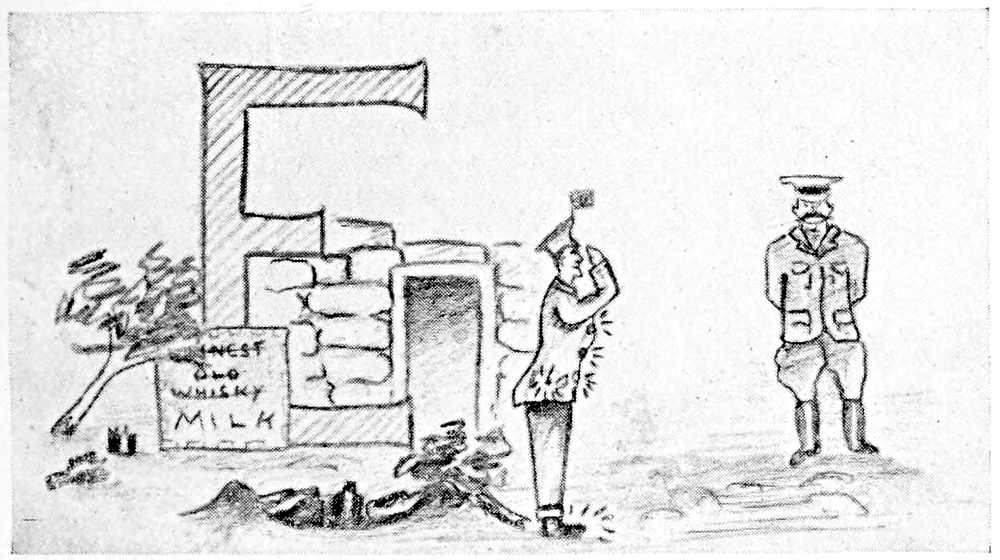 E
FINEST
OLD
WHISKY
MILK